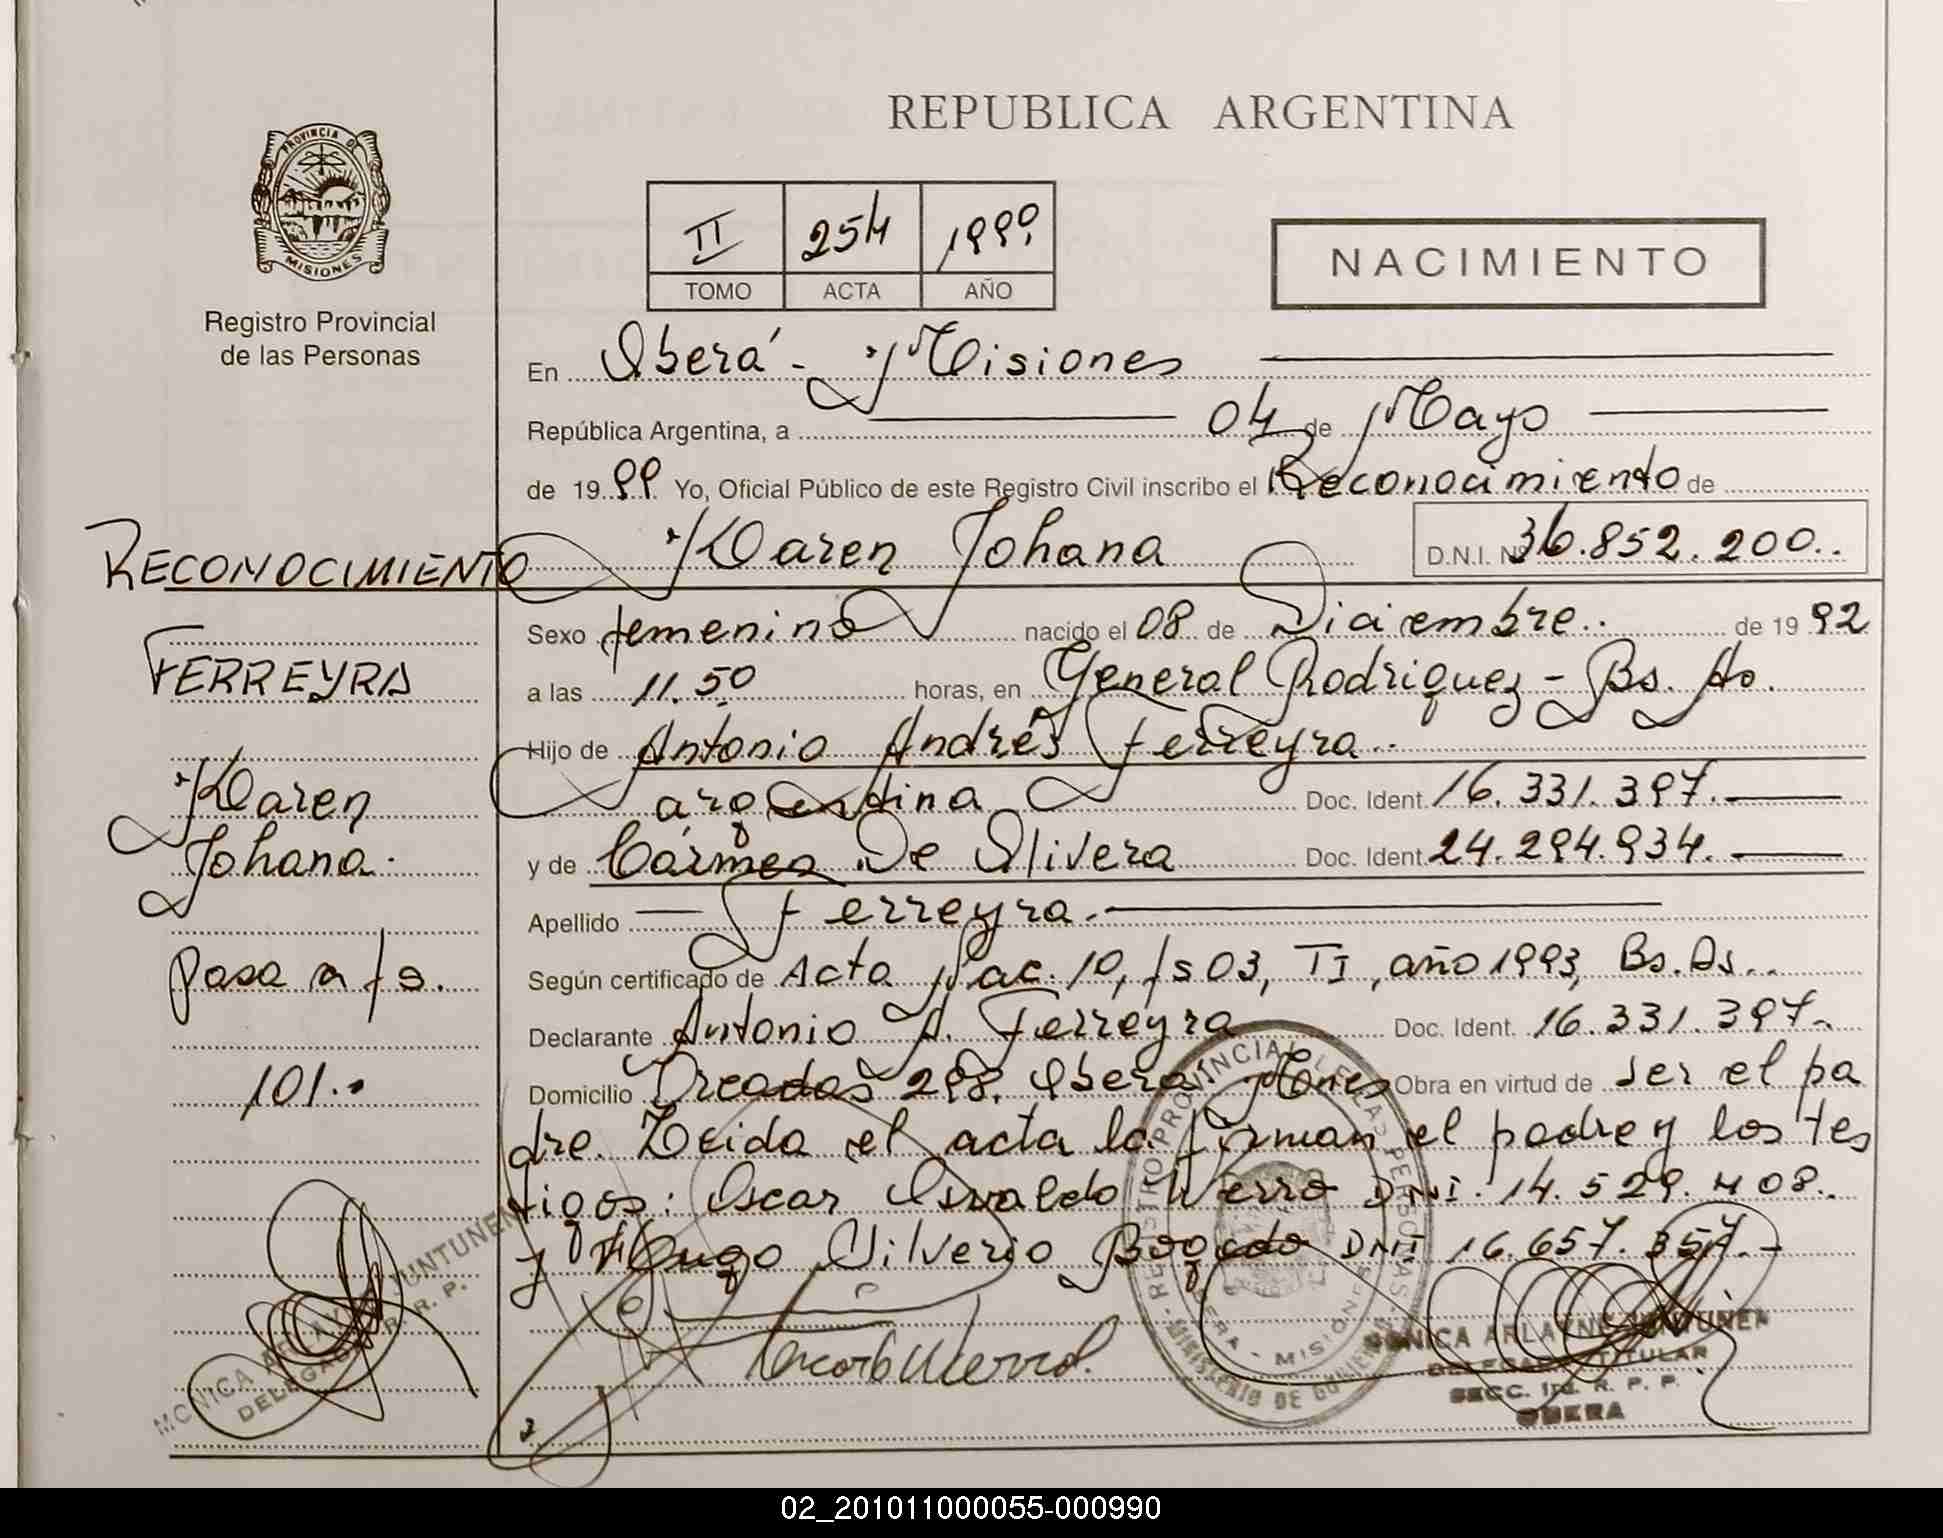 REPUBLICA ARGENTINA
PROVINCIA DE
MISIONES
Registro Provincial
de las Personas
II 254 1999
TOMO ACTA AÑO
NACIMIENTO
En Oberá - Misiones
República Argentina, a 04 de Mayo
de 1999 Yo, Oficial Público de este Registro Civil inscribo el Reconocimiento de
Karen Johana D.N.I. Nº 36.852.200..
RECONOCIMIENTO
FERREYRA
Karen
Johana.
Pasa a fs.
101..
Sexo femenino nacido el 08 de Diciembre.. de 1992
a las 11.50 horas, en General Rodriguez - Bs. As.
Hijo de Antonio Andrés Ferreyra..
argentina Doc. Ident. 16.331.397.
y de Cármen De Olivera Doc. Ident. 24.294.934.
Apellido Ferreyra.
Según certificado de Acta Nac. 10, fs 03, TI, año 1993, Bs.As..
Declarante Antonio A. Ferreyra Doc. Ident. 16.331.397.
Domicilio 298. Oberá. Mones Obra en virtud de ser el pa
dre. Leida el acta la firman el padre y los tes
tigos: Oscar Osvaldo Werro DNI. 14.529.408..
y Hugo Silverio Bogado DNI 16.657.357.-
REGISTRO PROVINCIAL DE LAS PERSONAS
OBERA - MISIONES
MINISTERIO DE GOBIERNO
MONICA ARLAYNE JUNTUNEN
DELEGADA TITULAR
SECC. 1ra. R. P. P.
OBERA
MONICA ARLAYNE JUNTUNEN
DELEGADA R. P.
02_201011000055-000990